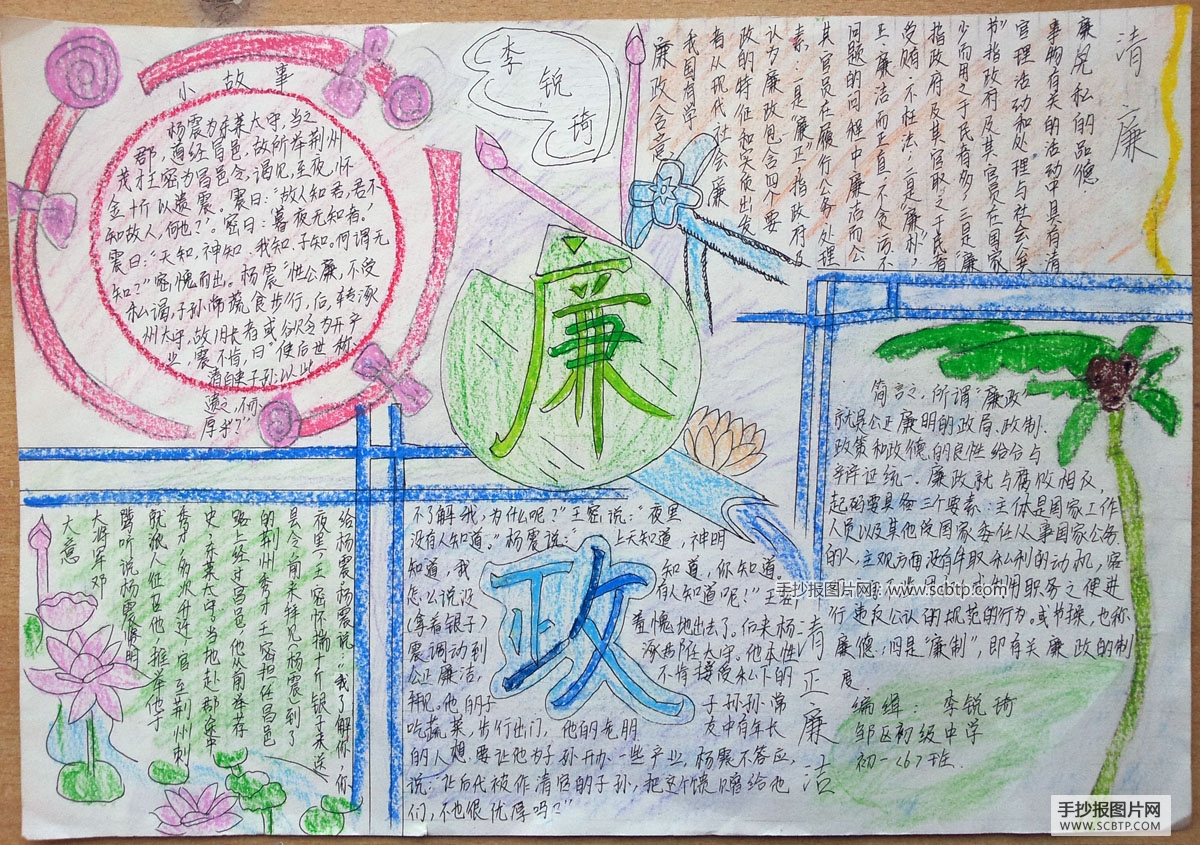 小故事
杨震为东莱太守，当之
郡，道经昌邑，故所举荆州
茂才王密为昌邑令，谒见，至夜，怀
金十斤以遗震。震曰：“故人知君，君不
知故人，何也？”。密曰：暮夜无知者。”
震曰：“天知，神知，我知，子知。何谓无
知？”密愧而出。杨震“性公廉，不受
私谒，子孙常蔬食步行，后，转涿
州太守，故旧长者或
业，震不肯，曰“使后世称
清白吏子孙：以此
遗之，不亦
厚乎？”
李锐琦
清廉
廉兒私的品德
事物有关的活动中具有清
官理活动和处理”与社会公矣
书”指政府及其官员在国家
少而用之于民者多，三是“廉
指政府及其官取之于民者
受贿，不枉法；二是“廉朴”，
正，廉洁而正直，不贪污不
问题的问解中廉洁而公
其官员在履行公务处理
素：一是“廉正”，指政府及
认为廉政包含四个要
政的特征和实质出发
有从现代社会廉
我国有学
廉政含意
廉
政
简言之，所谓“廉政”
就是公正廉明的政局、政制、
政策和政德的良性给分与
辛许证统一。廉政就与腐败相反，
起码要具备三个要素：主体是国家工作
人员以及其他受国家委任从事国家公务
的人，主观方面没有牟取私利的动机，客
用职务之便进
行违反公认的规范的行为。或节操，也称
廉德；四是“廉制”，即有关廉政的制
度
编组：李锐琦
邹区初级中学
初一〈6〉班
大意
大将军邓
骘听说杨震贤明
就派人征召他，推举他于
秀才，多次升迁，官至荆州刺
史、东莱太守当他赴郡途中
路上经过昌邑，他从前举荐
的荆州秀才王密担任昌邑
县令，前来拜见（杨震）到了
夜里，王密怀揣十斤银子来送
给杨震，杨震说：“我了解你，你
不了解我，为什么呢？”王密说：“夜里
没有人知道。”杨震说：“上天知道，神明
知道，我知道，你知道。
怎么说没有人知道呢！”王密
（拿着银子）羞愧地出去了。后来杨
震调动到涿郡任太守。他本性
公正廉洁，不肯接受私下的
拜见。他的子子孙孙常
吃蔬菜，步行出门，他的老朋友中有年长
的人想要让他为子孙开办一些产业，杨震不答应，
说：“让后代被作清官的子孙，把这个馈赠给他
们，不也很优厚吗？”
清正廉洁
手抄报图片网 www.scbtp.com
手抄报图片网
WWW.SCBTP.COM